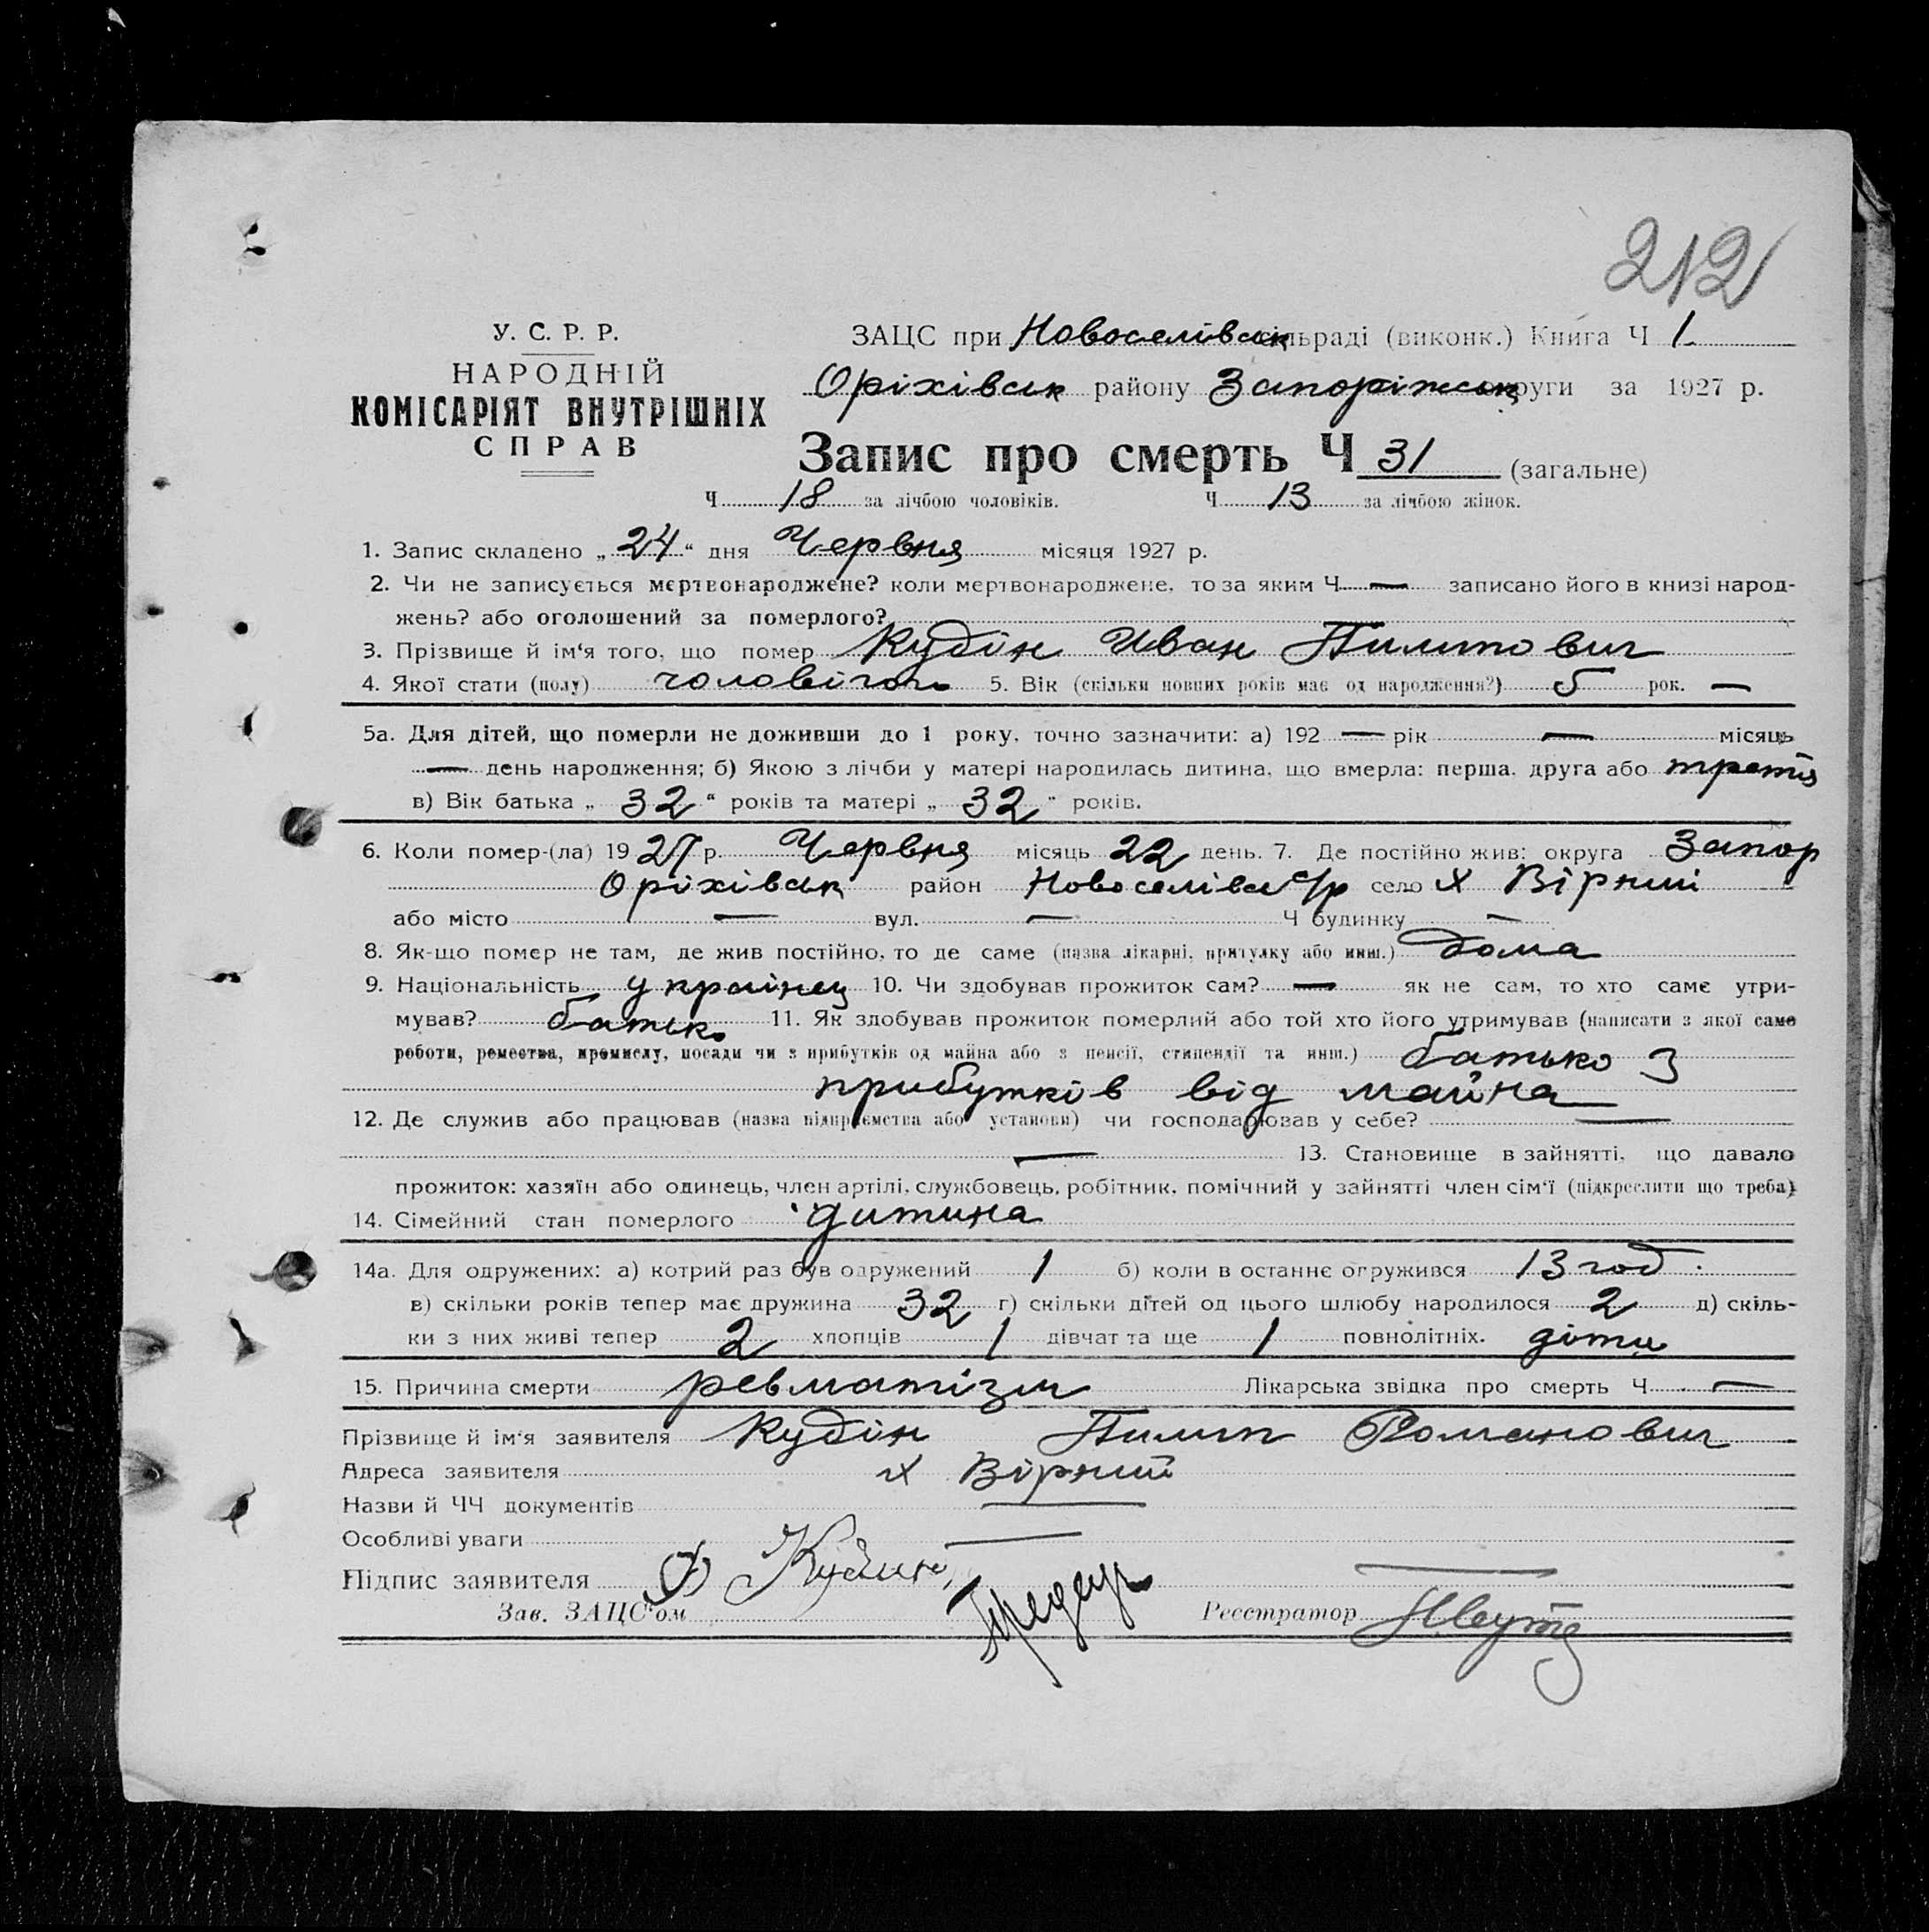 212
У. С. Р. Р.
НАРОДНІЙ
КОМІСАРІЯТ ВНУТРІШНІХ
СПРАВ
ЗАЦС при Новоселівськ сільраді (виконк.) Книга Ч 1
Оріхівськ району Запоріжськ округи за 1927 р.
Запис про смерть Ч 31 (загальне)
Ч 18 за лічбою чоловіків. Ч 13 за лічбою жінок.
1. Запис складено „24“ дня Червня місяця 1927 р.
2. Чи не записується мертвонароджене? коли мертвонароджене, то за яким Ч — записано його в книзі народ-
жень? або оголошений за померлого?
3. Прізвище й ім'я того, що помер Кудін Иван Пилипович
4. Якої стати (полу) чоловічої 5. Вік (скільки повних років має од народження?) 5 рок. —
5а. Для дітей, що померли не доживши до 1 року, точно зазначити: а) 192 — рік — місяць
— день народження; б) Якою з лічби у матері народилась дитина, що вмерла: перша, друга або третя
в) Вік батька „32“ років та матері „32“ років.
6. Коли помер-(ла) 1927 р. Червня місяць 22 день. 7. Де постійно жив: округа Запор
Оріхівськ район Новоселівск с/р село х Вірний
або місто — вул. — Ч будинку —
8. Як-що помер не там, де жив постійно, то де саме (назва лікарні, притулку або инш.) дома
9. Національність українец 10. Чи здобував прожиток сам? — як не сам, то хто саме утри-
мував? батько 11. Як здобував прожиток померлий або той хто його утримував (написати з якої саме
роботи, ремества, промислу, посади чи з прибутків од майна або з пенсії, стипендії та инш.) батько з
прибутків від майна
12. Де служив або працював (назва підприємства або установи) чи господарював у себе? —
— 13. Становище в зайнятті, що давало
прожиток: хазяїн або одинець, член артілі, службовець, робітник, помічний у зайнятті член сім'ї (підкреслити що треба)
14. Сімейний стан померлого дитина
14а. Для одружених: а) котрий раз був одружений 1 б) коли в останнє огружився 13 год.
в) скільки років тепер має дружина 32 г) скільки дітей од цього шлюбу народилося 2 д) скіль-
ки з них живі тепер 2 хлопців 1 дівчат та ще 1 повнолітніх. діти
15. Причина смерти ревматізм Лікарська звідка про смерть Ч —
Прізвище й ім'я заявителя Кудін Пилип Романович
Адреса заявителя х Вірний
Назви й ЧЧ документів —
Особливі уваги —
Підпис заявителя Ф Кудин
Зав. ЗАЦС'ом Реєстратор